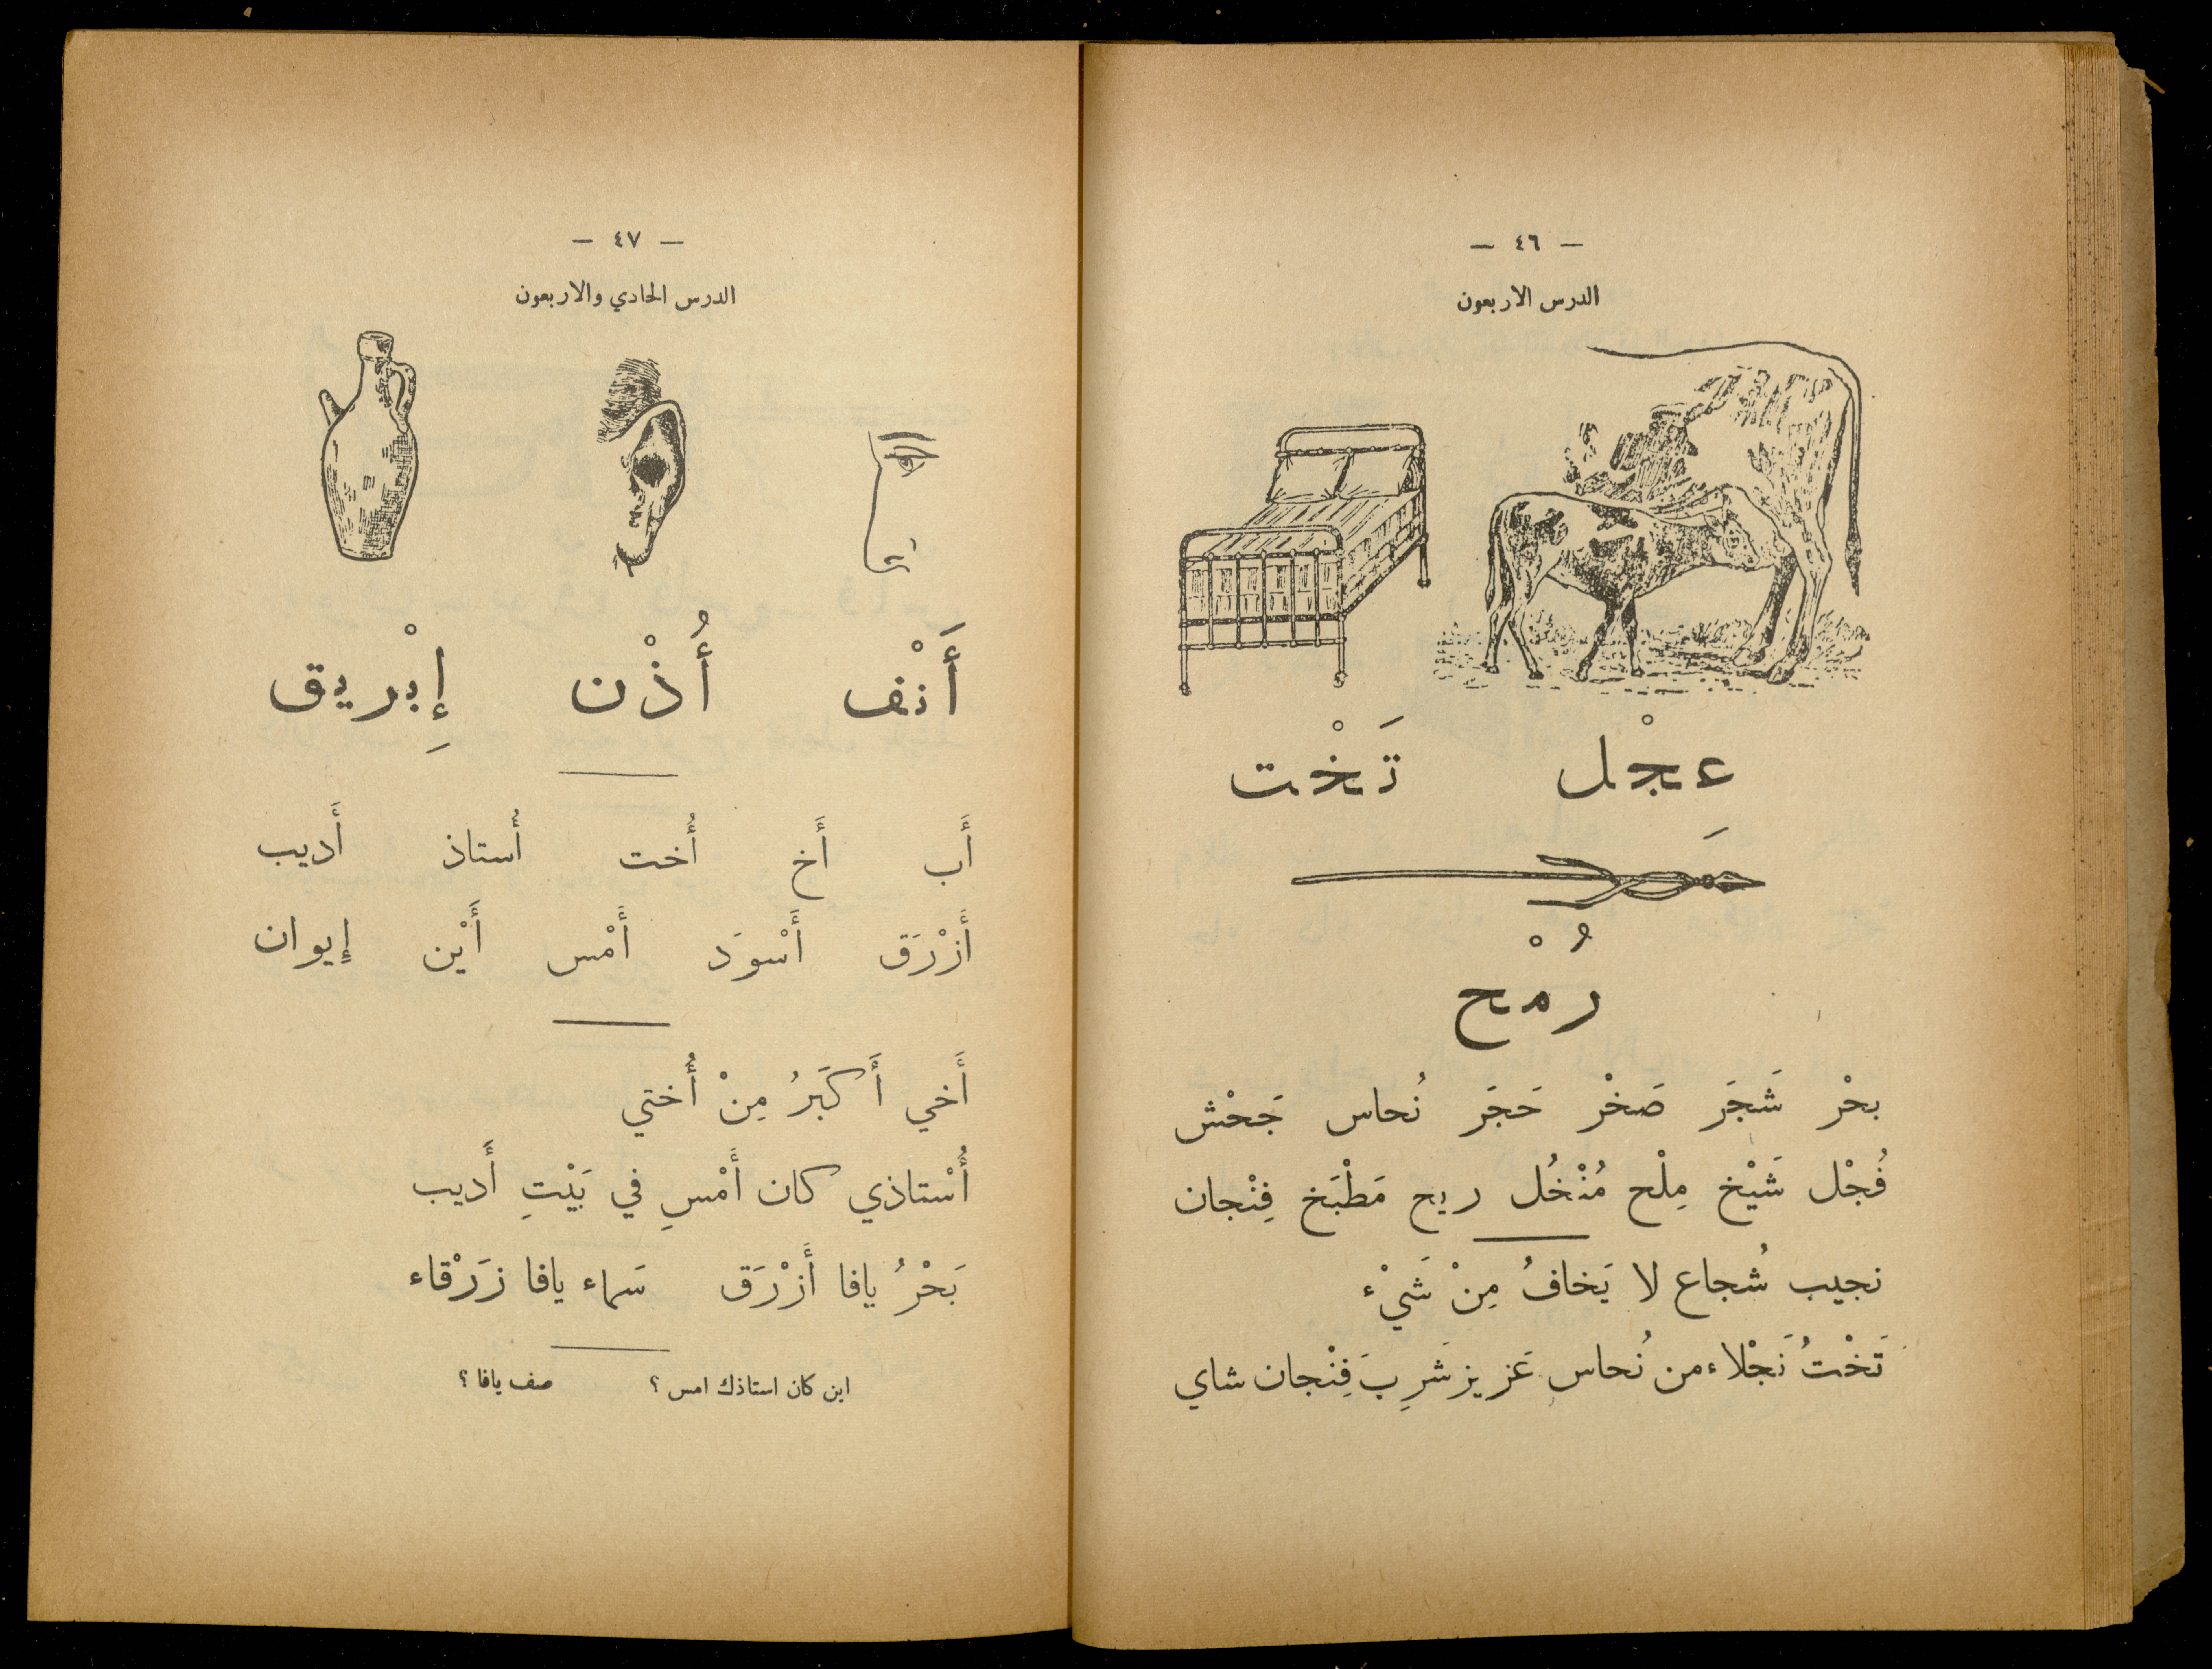 — ٤٦ —
الدرس الاربعون
عجْل تَخْت
رُمْح
بحْر شَجَر صَخْر حَجَر نُحاس جَحْش
فُجْل شَيْخ مِلْح مُنْخُل ريح مَطْبَخ فِنْجان
نجيب شُجاع لا يَخافُ مِنْ شَيْء
تَخْتُ نَجْلاء من نُحاس عَزيز شَرِبَ فِنْجان شاي
— ٤٧ —
الدرس الحادي والاربعون
أَنْف أُذْن إِبْريق
أَب أَخ أُخت أُستاذ أَديب
أَزْرَق أَسْوَد أَمْس أَيْن إيوان
أَخي أَكبَرُ مِنْ أُختي
أُسْتاذي كان أَمْسِ في بَيْتِ أَديب
بَحْرُ يافا أَزْرَق سَماء يافا زَرْقاء
اين كان استاذك امس ؟ صف يافا ؟